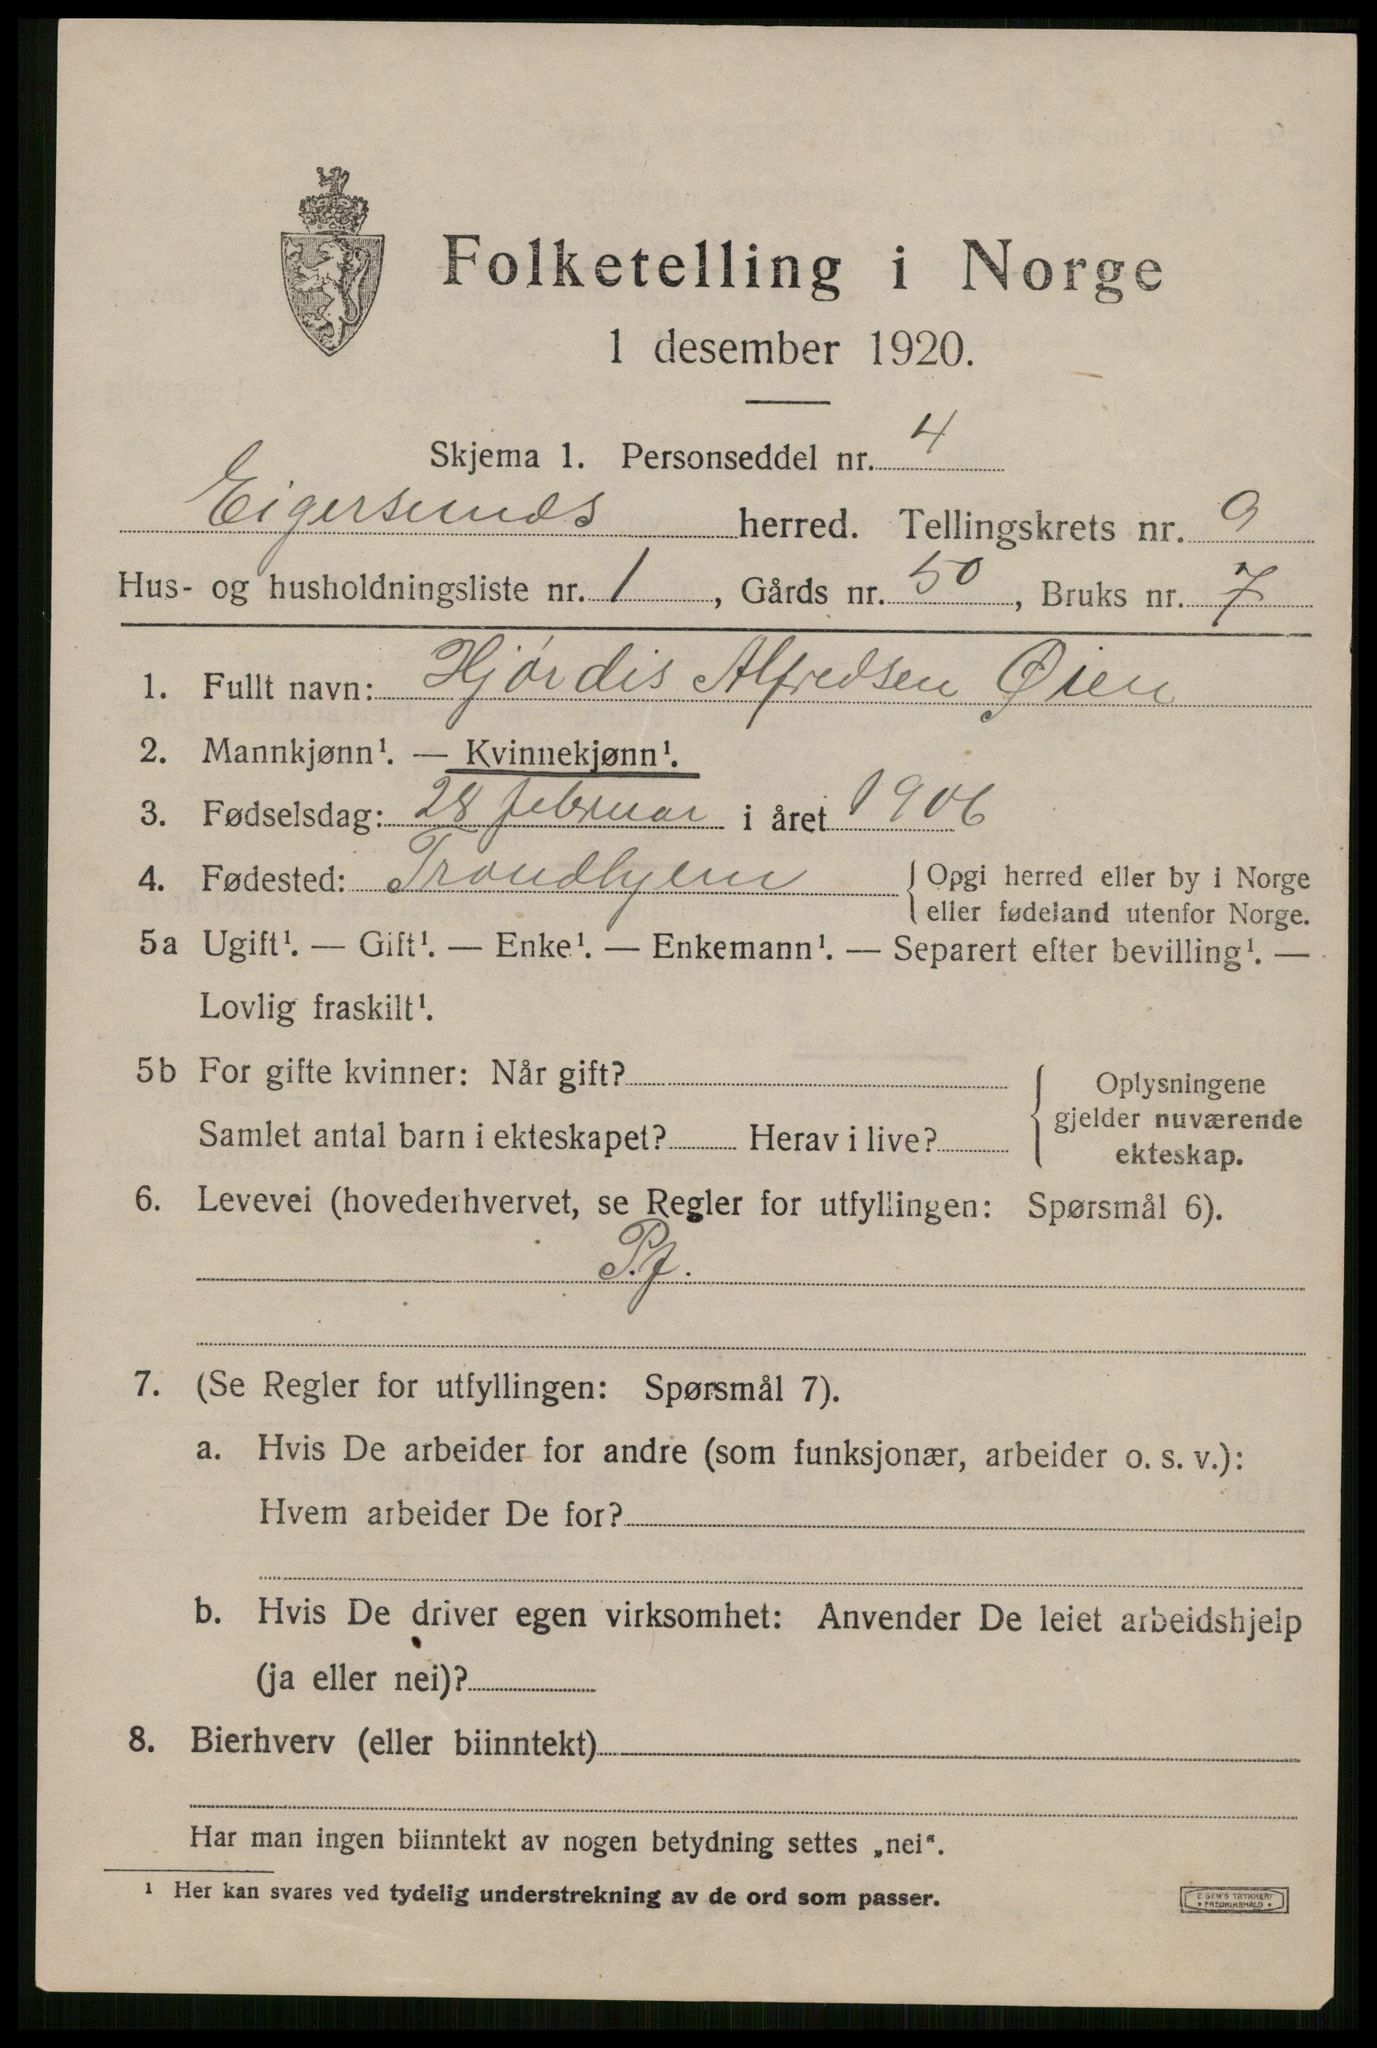 Folketelling i Norge
1 desember 1920.
Skjema 1. Personseddel nr. 4
Eigersunds herred. Tellingskrets nr. 9
Hus- og husholdningsliste nr. 1, Gårds nr. 50, Bruks nr. 7
1. Fullt navn: Hjórdis Alfredsen Øien
2. Mannkjønn¹. — Kvinnekjønn¹.
3. Fødselsdag: 28 februar i året 1906
4. Fødested: Trondhjem { Opgi herred eller by i Norge
eller fødeland utenfor Norge.
5a Ugift¹. — Gift¹. — Enke¹. — Enkemann¹. — Separert efter bevilling¹. —
Lovlig fraskilt¹.
5b For gifte kvinner: Når gift?
Samlet antal barn i ekteskapet? Herav i live?
{ Oplysningene
gjelder nuværende
ekteskap.
6. Levevei (hovederhvervet, se Regler for utfyllingen: Spørsmål 6).
P.f.
7. (Se Regler for utfyllingen: Spørsmål 7).
a. Hvis De arbeider for andre (som funksjonær, arbeider o. s. v.):
Hvem arbeider De for?
b. Hvis De driver egen virksomhet: Anvender De leiet arbeidshjelp
(ja eller nei)?
8. Bierhverv (eller biinntekt)
Har man ingen biinntekt av nogen betydning settes „nei“.
¹ Her kan svares ved tydelig understrekning av de ord som passer.
E. SEM'S TRYKKERI
FREDRIKSHALD